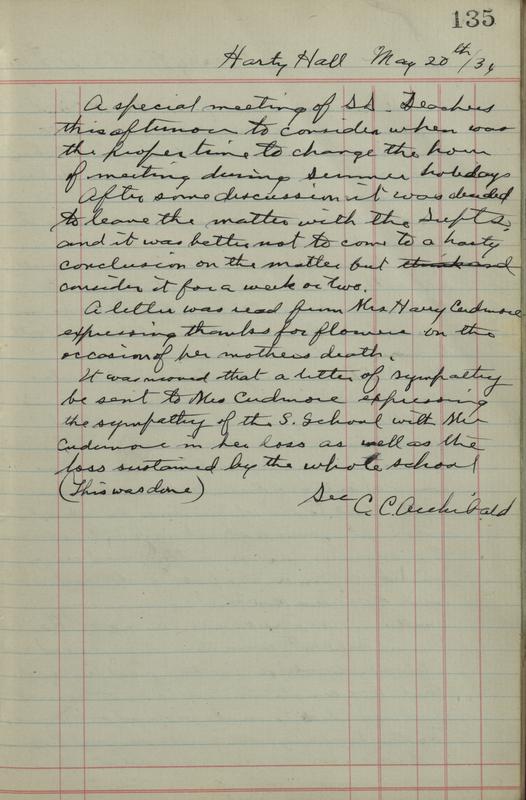 135
Harty Hall May 20th/34
A special meeting of S.S. Teachers
this afternoon to consider when was
the proper time to change the hour
of meeting during summer holidays
After some discussion it was decided
to leave the matter with the Supts,
and it was better not to come to a hasty
conclusion on the matter but think and
consider it for a week or two.
A letter was read from Mrs Harry Cudmore
expressing thanks for flowers on the
occasion of her mothers death.
It was moved that a letter of sympathy
be sent to Mrs Cudmore expressing
the sympathy of the S. School with Mrs
Cudmore in her loss as well as the
loss sustained by the whole school
(This was done)
Sec C. C. Archibald